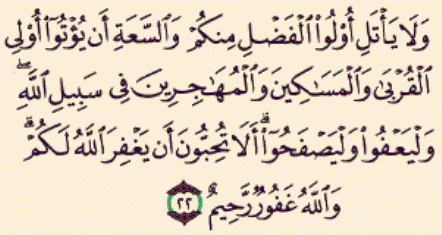 وَلَا يَأْتَلِ أُو۟لُوا۟ ٱلْفَضْلِ مِنكُمْ وَٱلسَّعَةِ أَن يُؤْتُوٓا۟ أُو۟لِى
ٱلْقُرْبَىٰ وَٱلْمَسَـٰكِينَ وَٱلْمُهَـٰجِرِينَ فِى سَبِيلِ ٱللَّهِ ۖ
وَلْيَعْفُوا۟ وَلْيَصْفَحُوٓا۟ ۗ أَلَا تُحِبُّونَ أَن يَغْفِرَ ٱللَّهُ لَكُمْ ۗ
وَٱللَّهُ غَفُورٌ رَّحِيمٌ ۝٢٢